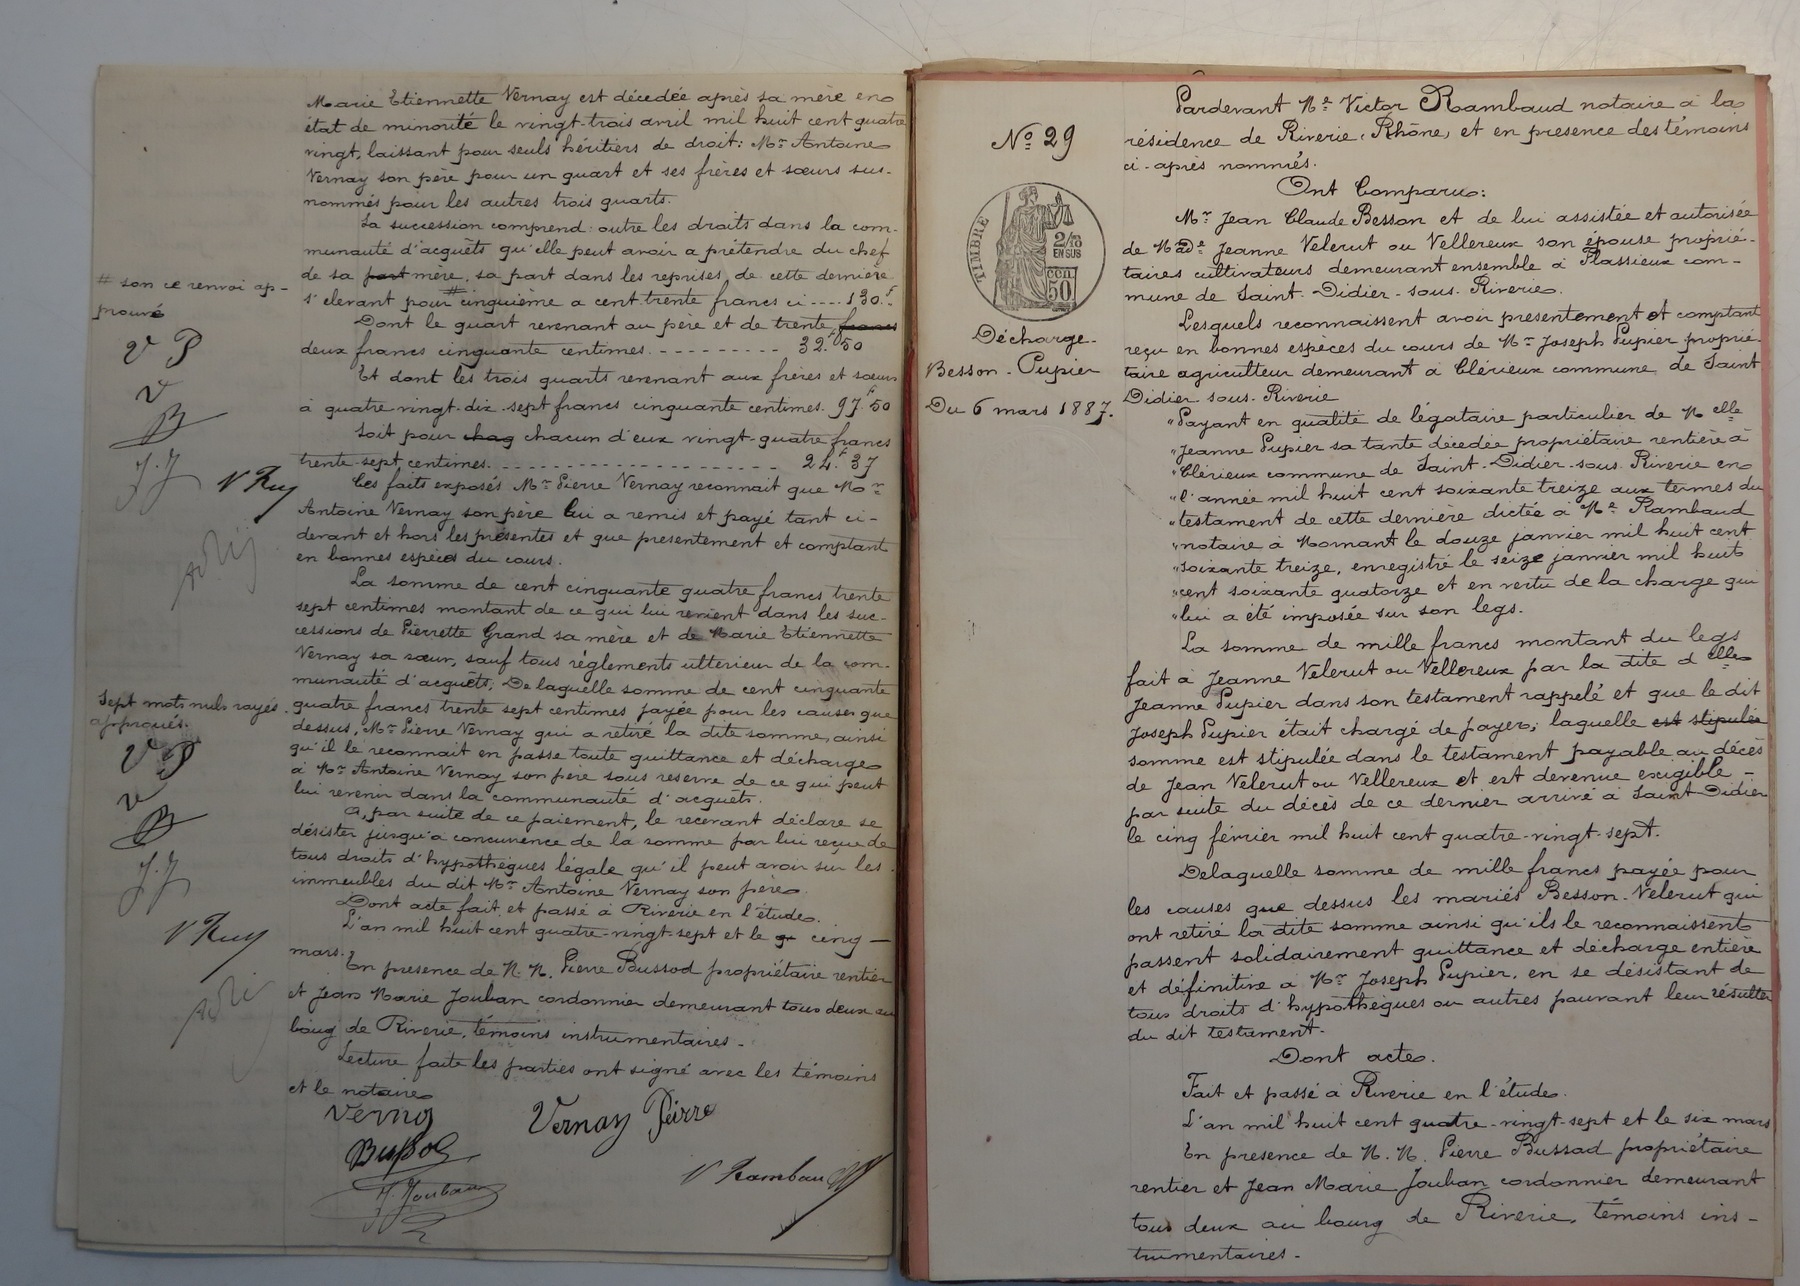 Marie Etiennette Vernay est décedée après sa mère en
état de minorité le vingt-trois avril mil huit cent quatre
vingt, laissant pour seuls héritiers de droit: Mr Antoine
Vernay son père pour un quart et ses frères et sœurs sus-
nommés pour les autres trois quarts.
La succession comprend: outre les droits dans la com-
munauté d'acquêts qu'elle peut avoir a prétendre du chef
de sa part mère, sa part dans les reprises de cette dernière
s'elevant pour # cinquième a cent-trente francs ci .... 130.f
Dont le quart revenant au père et de trente francs
deux francs cinquante centimes. - - - - - - - - - 32.f 50
Et dont les trois quarts revenant aux frères et sœurs
à quatre-vingt-dix-sept francs cinquante centimes. 97.f 50
Soit pour chaq chacun d'eux vingt-quatre francs
trente-sept centimes. - - - - - - - - - - - - - - - - - - 24.f 37
Ces faits exposés Mr Pierre Vernay reconnait que Mr
Antoine Vernay son père lui a remis et payé tant ci-
devant et hors les présentes et que presentement et comptant
en bonnes espèces du cours.
La somme de cent cinquante quatre francs trente
sept centimes montant de ce qui lui revient dans les suc-
cessions de Pierrette Grand sa mère et de Marie Etiennette
Vernay sa sœur, sauf tous réglements ulterieur de la com-
munauté d'acquêts; De laquelle somme de cent cinquante
quatre francs trente sept centimes payée pour les causes que
dessus, Mr Pierre Vernay qui a retiré la dite somme, ainsi
qu'il le reconnait en passe toute quittance et décharge
à Mr Antoine Vernay son père sous reserve de ce qui peut
lui revenir dans la communauté d'acquêts.
Et, par suite de ce paiement, le recevant déclare se
désister jusqu'a concurence de la somme par lui reçue de
tous droits d'hypothèques légale qu'il peut avoir sur les
immeubles du dit Mr Antoine Vernay son père.
Dont acte fait et passé à Riverie en l'étude.
L'an mil huit cent quatre-vingt-sept et le cinq —
mars.
En presence de M. M. Pierre Bussod propriétaire rentier
et Jean Marie Jouban cordonnier demeurant tous deux au
bourg de Riverie, témoins instrumentaires -
Lecture faite les parties ont signé avec les témoins
et le notaire
Verny
Vernay Peirre
Bussod
J. Jouban
V Rambaud
# son ce renvoi ap-
prouvé
V P
V
B
J. J
V Ruy
Sept mots nuls rayés
approuvés.
V P
V
B
J. J
V Ruy
No 29
TIMBRE
2/10
EN SUS
cen
50
Décharge-
Besson - Pupier
Du 6 mars 1887.
Pardevant Me Victor Rambaud notaire à la
résidence de Riverie, Rhône, et en presence des témoins
ci-après nommés.
Ont Comparu:
Mr Jean Claude Besson et de lui assistée et autorisée
de Mde Jeanne Velerut ou Vellereux son épouse proprié-
taires cultivateurs demeurant ensemble à Plassieux com-
mune de Saint-Didier-sous-Riverie.
Lesquels reconnaissent avoir presentement et comptant
reçu en bonnes espèces du cours de Mr Joseph Pupier proprié-
taire agriculteur demeurant à Clérieux commune de Saint
Didier-sous-Riverie
"Payant en qualité de légataire particulier de Melle
"Jeanne Pupier sa tante décedée propriétaire rentière à
"Clérieux commune de Saint-Didier-sous-Riverie en
"l'année mil huit cent soixante treize aux termes du
"testament de cette dernière dictée à Me Rambaud
"notaire à Mornant le douze janvier mil huit cent
"soixante treize, enregistré le seize janvier mil huit
"cent soixante quatorze et en vertu de la charge qui
"lui a été imposée sur son legs.
La somme de mille francs montant du legs
fait à Jeanne Velerut ou Vellereux par la dite delle
Jeanne Pupier dans son testament rappelé et que le dit
Joseph Pupier était chargé de payer; laquelle est stipulée
somme est stipulée dans le testament payable au décès
de Jean Velerut ou Vellereux et est devenue exigible -
par suite du décès de ce dernier arrivé à Saint-Didier
le cinq février mil huit cent quatre-vingt-sept.
Delaquelle somme de mille francs payée pour
les causes que dessus les mariés Besson-Velerut qui
ont retiré la dite somme ainsi qu'ils le reconnaissent
passent solidairement quittance et décharge entière
et définitive à Mr Joseph Pupier, en se désistant de
tous droits d'hypothèques ou autres pouvant leur résulter
du dit testament.
Dont acte.
Fait et passé à Riverie en l'étude.
L'an mil huit cent quatre-vingt-sept et le six mars
En presence de M. M. Pierre Bussod propriétaire
rentier et Jean Marie Jouban cordonnier demeurant
tous deux au bourg de Riverie, témoins ins-
trumentaires -